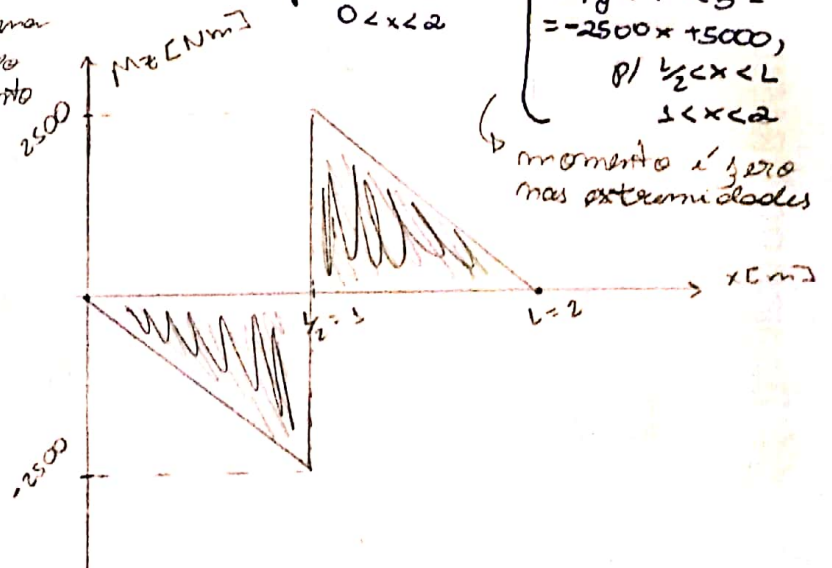 0<x<2
= -2500x +5000,
p/ L/2<x<L
1<x<2
momento é zero
nas extremidades
Mz [Nm]
2500
x[m]
L/2=1
L=2
-2500